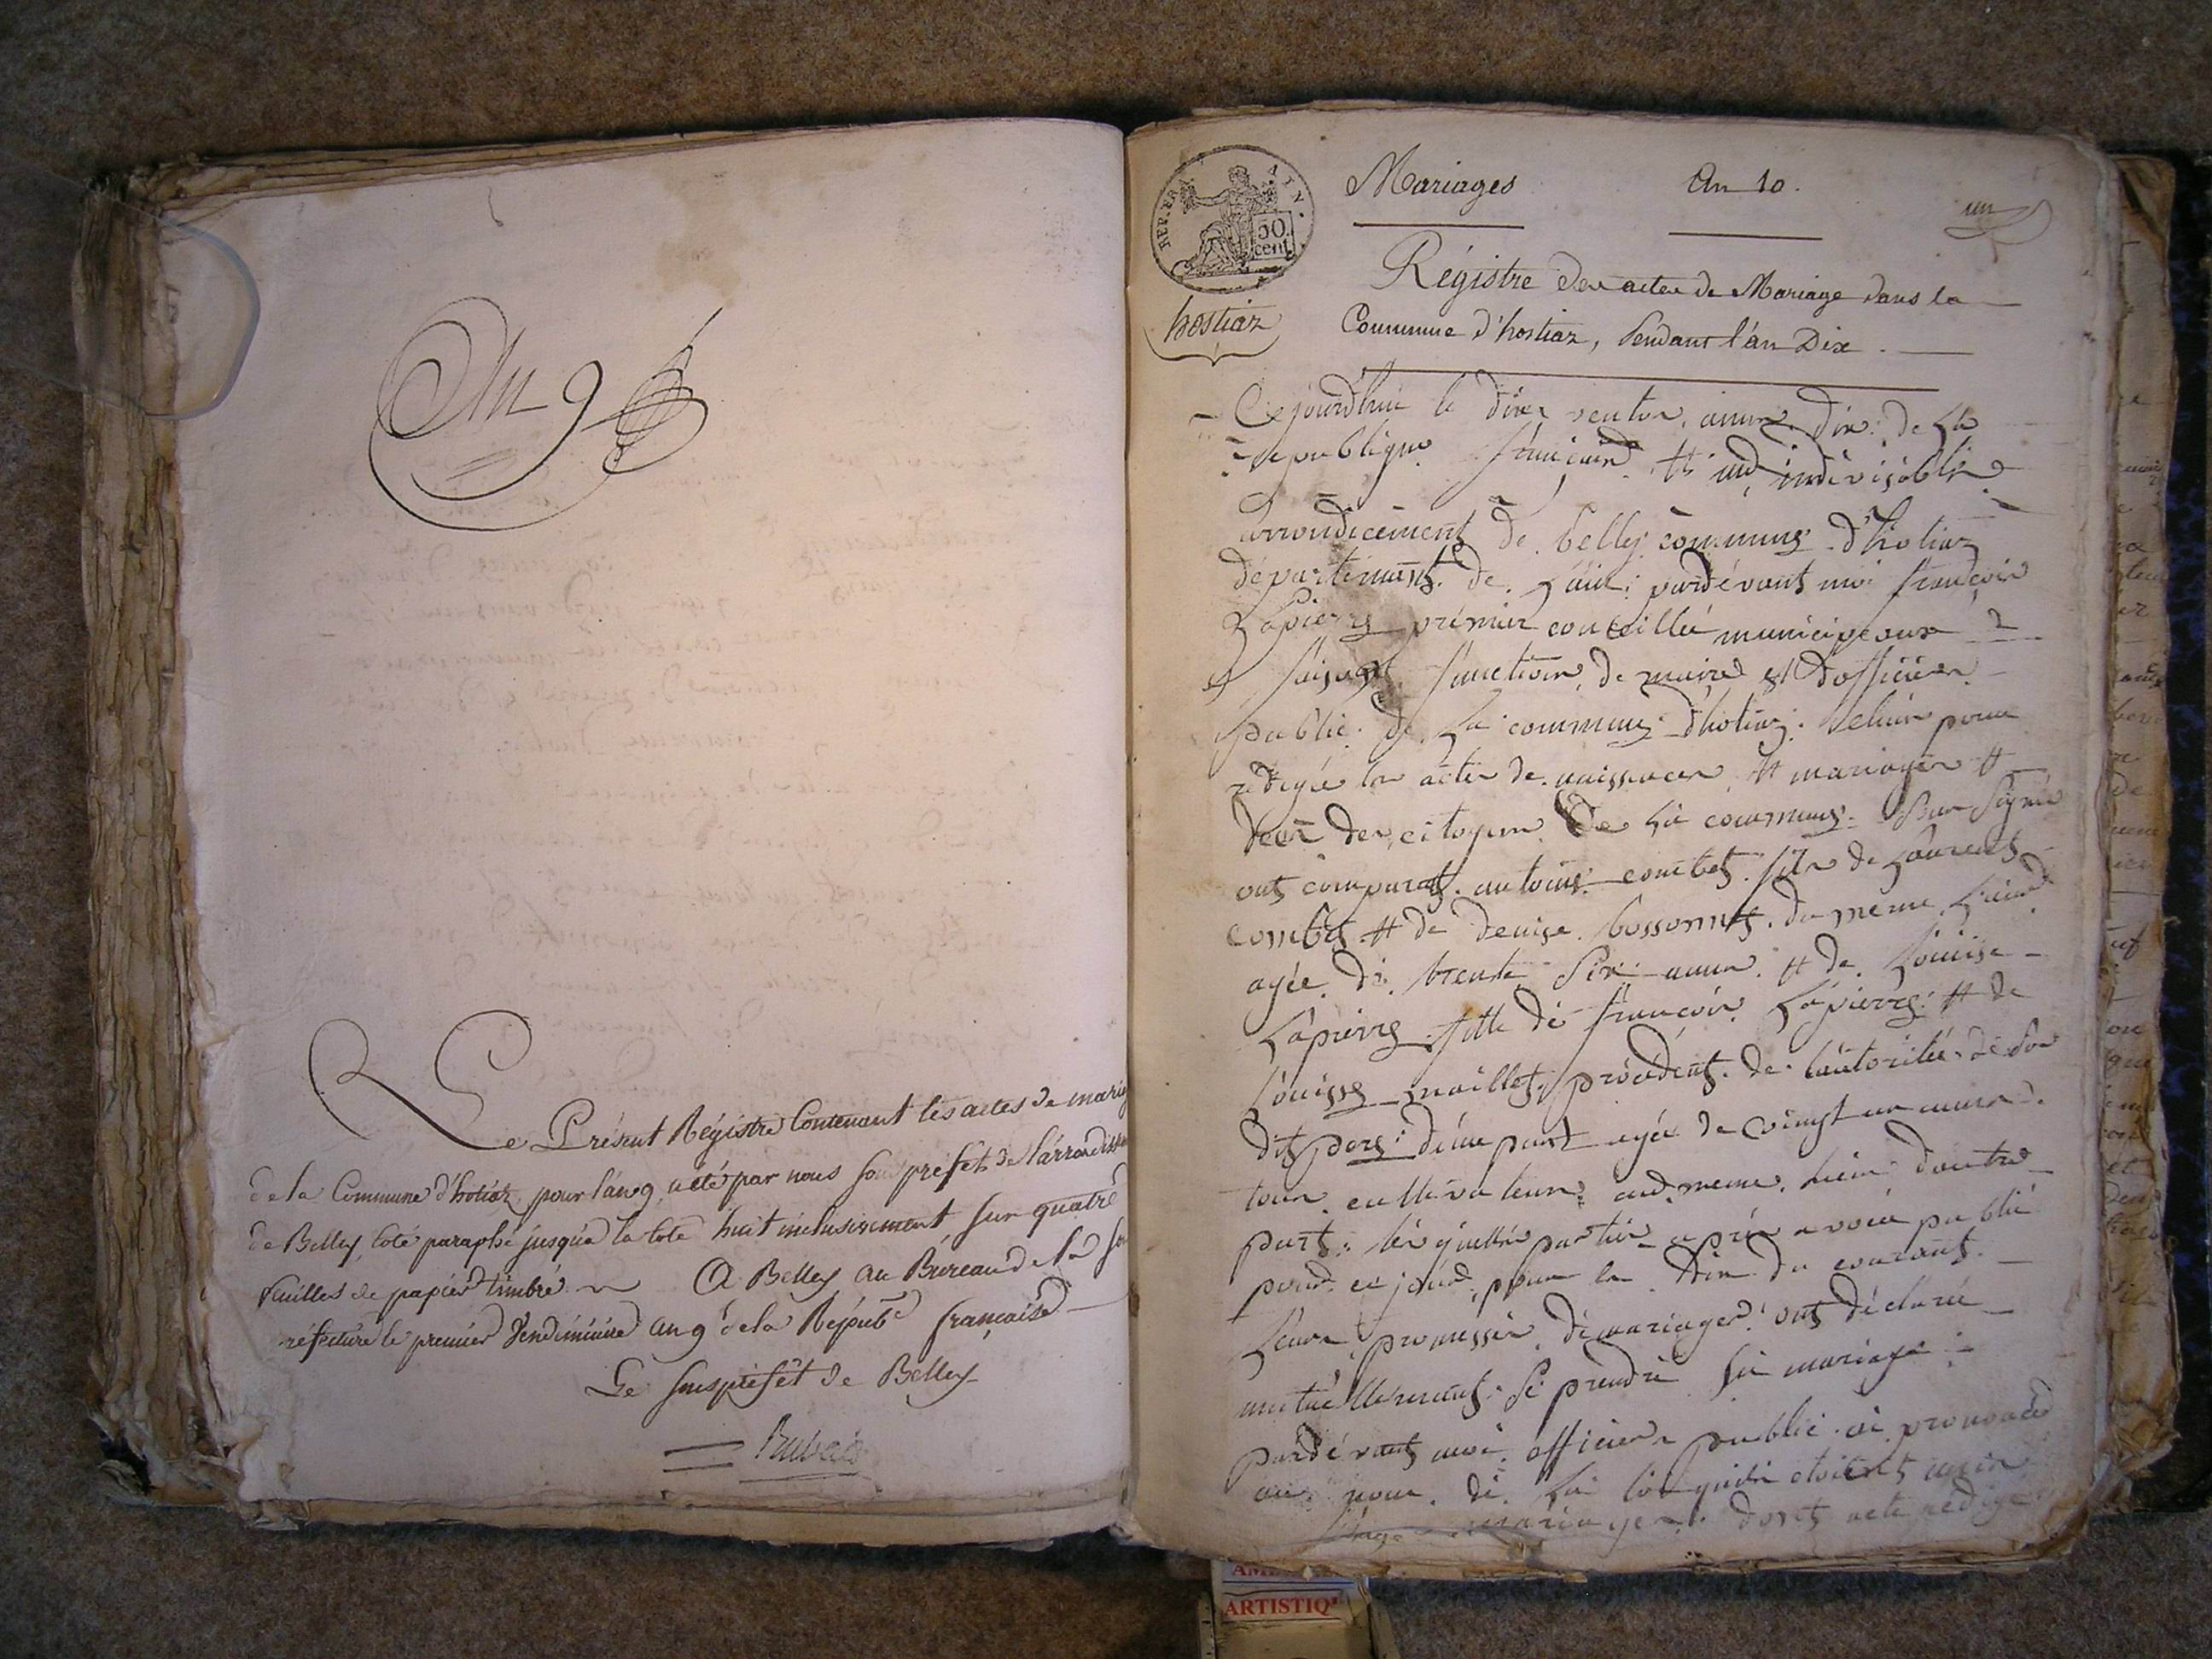 An 9
Le Présent Régistre Contenant les actes de mariag
de la Commune d'hotiaz pour l'an 9, a été par nous souspréfet de l'arrondissem
de Belley, coté paraphé jusqu'à la cote huit inclusivement sur quatre
feuilles de papier timbré A Belley au Bureau de la so
réfecture le premier Vendémiaire an 9 de la Répub française
Le souspréfêt de Belley
REP. FRA. AIN.
50
cent.
hostiaz
Mariages An 10.
un
Régistre des actes de Mariage dans la
Commune d'hostiaz, pendant l'an Dix.
Cejourdhui le dix ventos, anne dix de La
republique francaise et une indivisible
arrondicement de belley commune d'hotiaz
département de Lain pardévant moi françois
Lapierre prémier conseillé municipeaux
faisant fonction de maire et d'officier
public de La commune d'hotiaz. pour
rédigée les actes de naissances et mariages et
des citoyens de La commune. Sous signé
ont comparut antoine combet fils de Laurent
combet et de denise bossonnet du même Lieu
agée de trente six anns et de Louise
Lapierre fille de françois Lapierre et de
Louisse maillet procédent de lautorité de son
dit pere d'une part agée de vingt un anns
tous cultivateurs aud. meme Lieu d'autre
part. les quelles parties apres avoir publié
pour la dix du courant
Leurs promesses de mariages ont déclaré
mutuellement se prendre en mariage
pardévant moi officier public ai prononcé
au nom de La loi quils etoient unis
mariages dont acte rédigé
ARTISTIQ